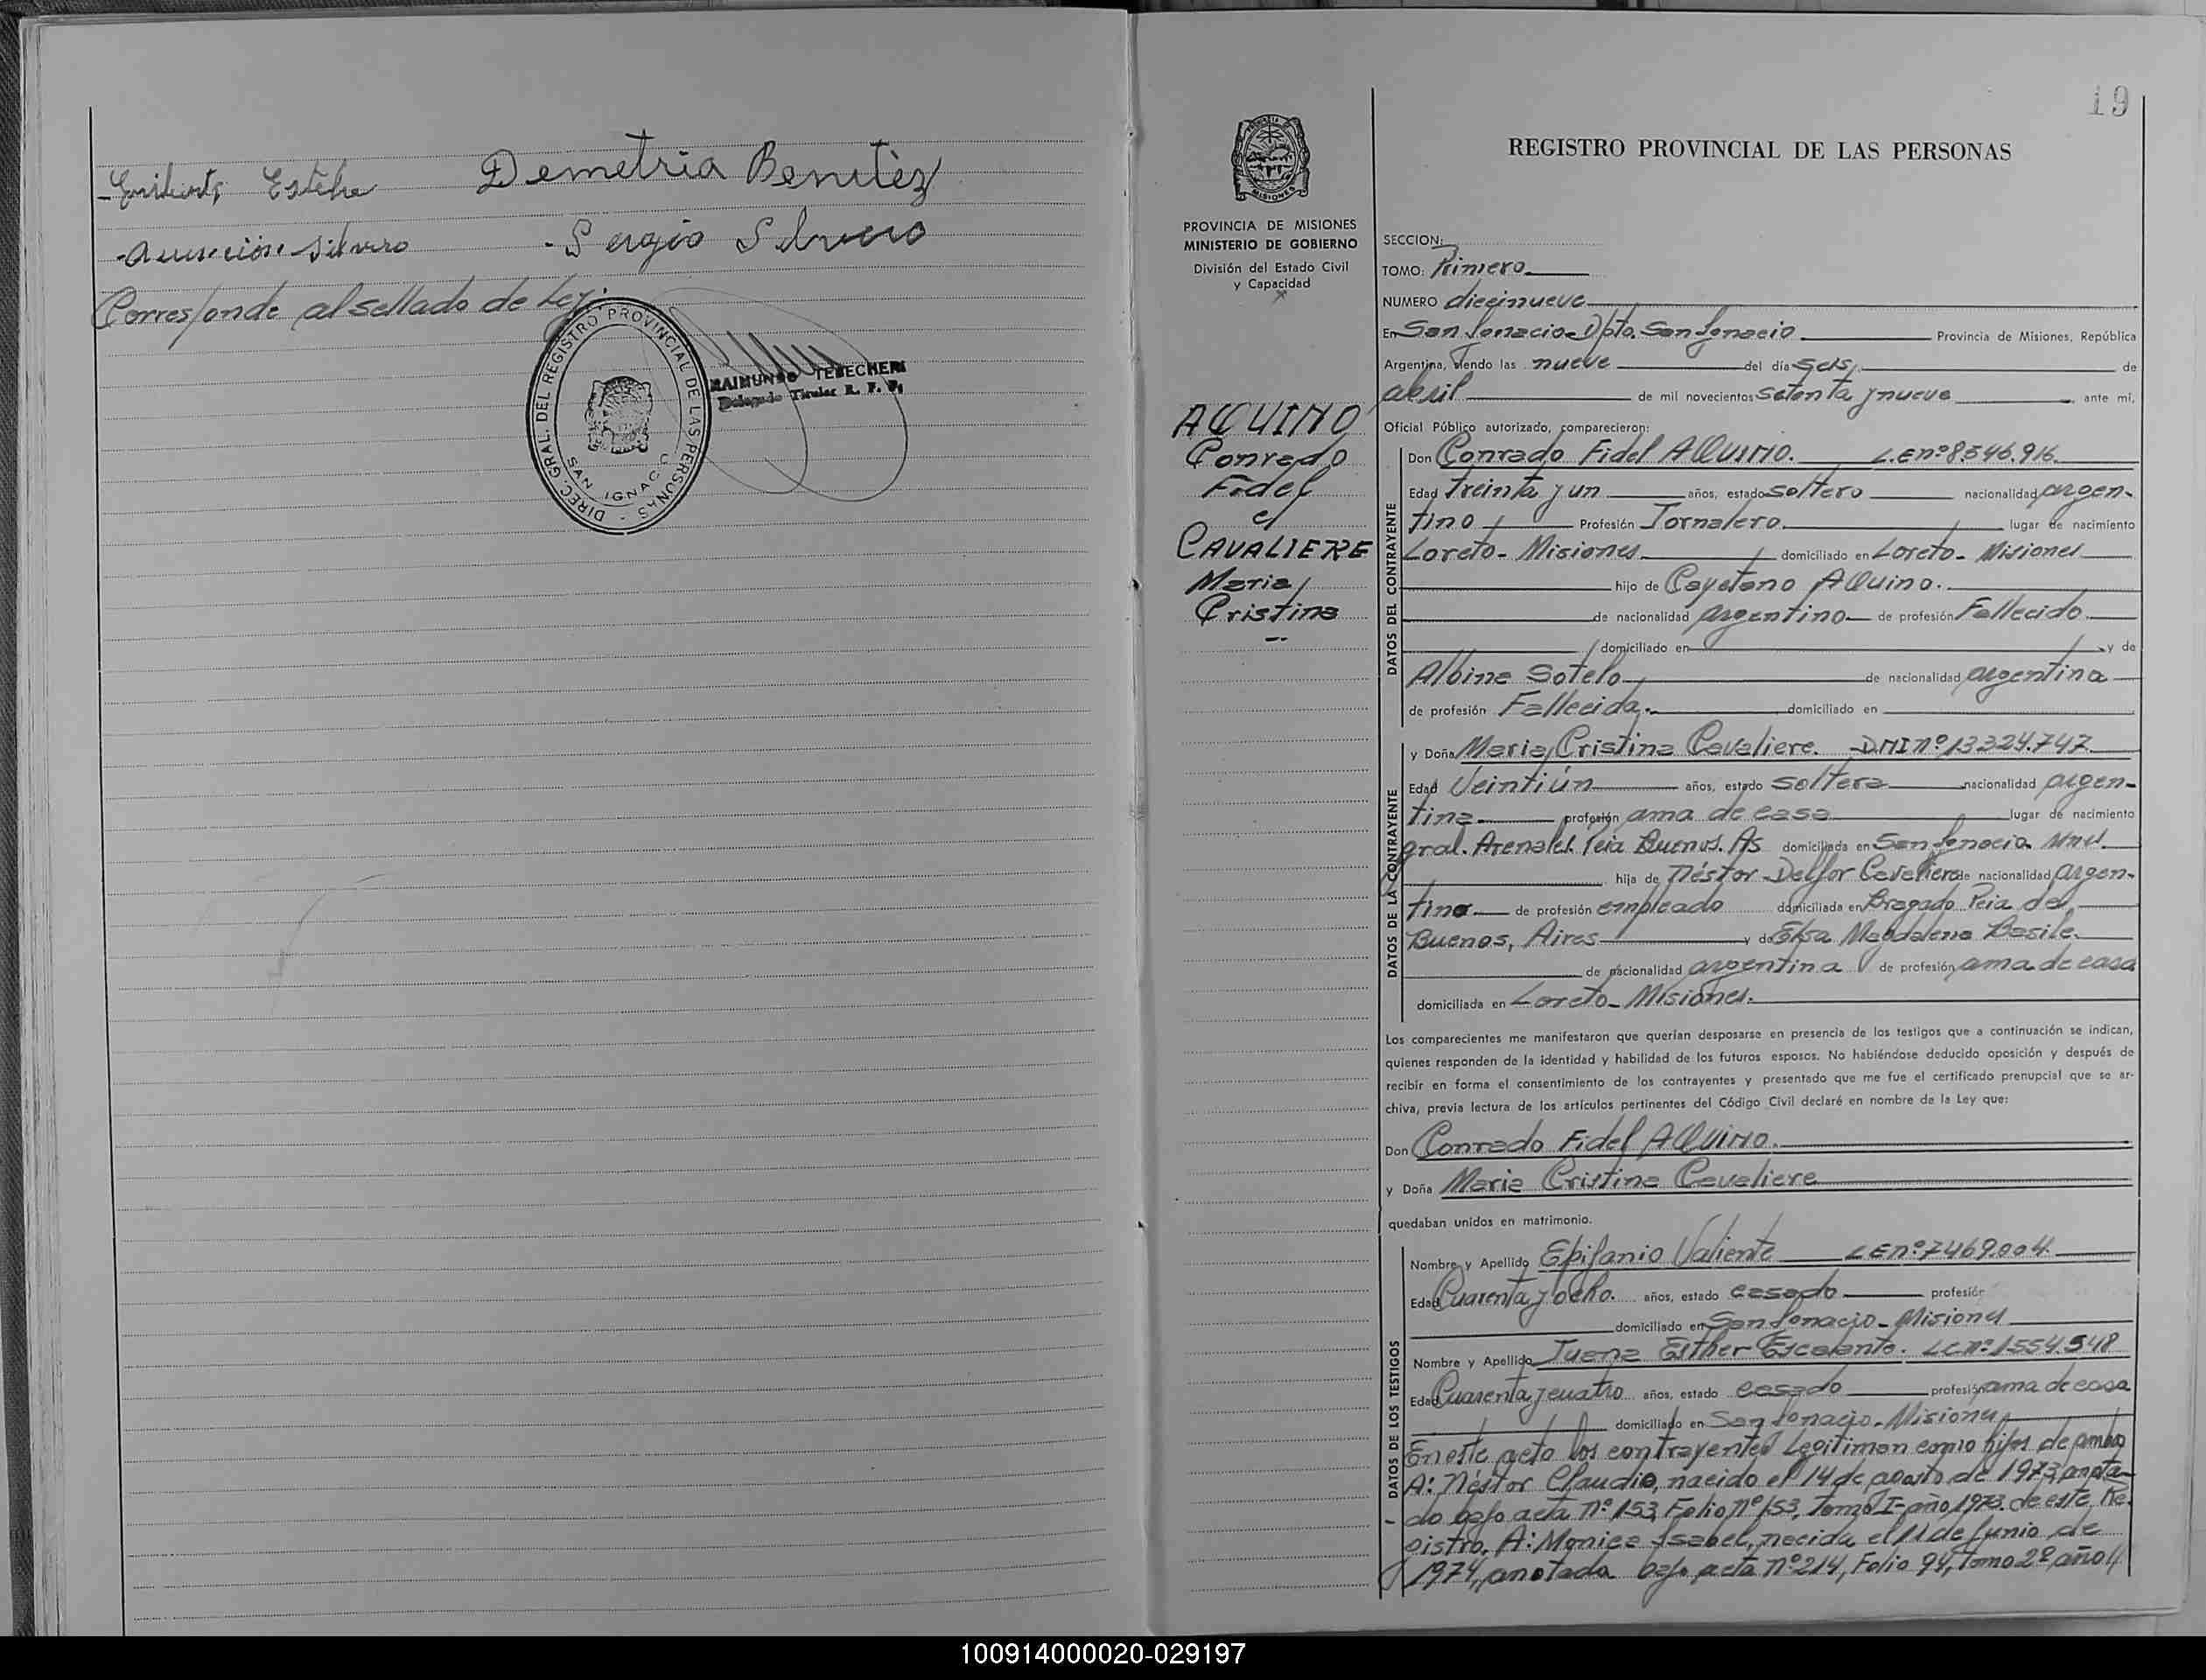 Demetria Benitèz
- Asunción Silvero - Sergio Silvero
Corresponde al sellado de Ley.
DIREC. GRAL. DEL REGISTRO PROVINCIAL DE LAS PERSONAS -
SAN IGNACIO
RAIMUNDO TEBECHERI
Delegado Titular R. P. P.
19
PROVINCIA DE MISIONES
MINISTERIO DE GOBIERNO
División del Estado Civil
y Capacidad
AQUINO
Conrado
Fidel
c/
CAVALIERE
Maria
Cristina
REGISTRO PROVINCIAL DE LAS PERSONAS
SECCION:
TOMO: Primero
NUMERO diecinueve
En San Ignacio - Dpto. San Ignacio Provincia de Misiones, República
Argentina, siendo las nueve del día seis de
abril de mil novecientos setenta y nueve ante mí,
Oficial Público autorizado, comparecieron:
DATOS DEL CONTRAYENTE
Don Conrado Fidel AQUINO. L.E nº 8.546.916.
Edad treinta y un años, estado soltero nacionalidad argen-
tino Profesión Jornalero. lugar de nacimiento
Loreto - Misiones domiciliado en Loreto - Misiones
hijo de Cayetano AQuino.
de nacionalidad argentino de profesión Fallecido
domiciliado en y de
Albina Sotelo de nacionalidad argentina
de profesión Fallecida. domiciliado en
DATOS DE LA CONTRAYENTE
y Doña Maria Cristina Cavaliere. DNI nº 13.324.747
Edad Veintiún años, estado soltera nacionalidad argen-
tina profesión ama de casa lugar de nacimiento
gral. Arenales Pcia Buenos. As domiciliada en San Ignacio Mnes.
hija de Néstor Delfor Cavaliere de nacionalidad argen-
tino de profesión empleado domiciliada en Bragado Pcia de
Buenos, Aires y de Elsa Magdalena Basile.
de nacionalidad argentina de profesión ama de casa
domiciliada en Loreto - Misiones.
Los comparecientes me manifestaron que querían desposarse en presencia de los testigos que a continuación se indican,
quienes responden de la identidad y habilidad de los futuros esposos. No habiéndose deducido oposición y después de
recibir en forma el consentimiento de los contrayentes y presentado que me fue el certificado prenupcial que se ar-
chiva, previa lectura de los artículos pertinentes del Código Civil declaré en nombre de la Ley que:
Don Conrado Fidel AQUINO.
y Doña Maria Cristina Cavaliere
quedaban unidos en matrimonio.
DATOS DE LOS TESTIGOS
Nombre y Apellido Epifanio Valiente L E nº: 7.469.004.
Edad Cuarenta y ocho. años, estado casado profesión
domiciliado en San Ignacio - Misiones
Nombre y Apellido Juana Esther Escalante. L.C. nº 1.554.548
Edad Cuarenta y cuatro años, estado casado profesión ama de casa
domiciliado en San Ignacio - Misiones
En este acto los contrayentes Legitiman como hijos de ambos
A: Néstor Claudio, nacido el 14 de agosto de 1973, anota-
do bajo acta nº 153, Folio nº 153, Tomo I - año 1973. de este Re-
gistro. A: Monica Isabel, nacida el 11 de Junio de
1974, anotada bajo acta nº 214, Folio 94, Tomo 2º año
100914000020-029197